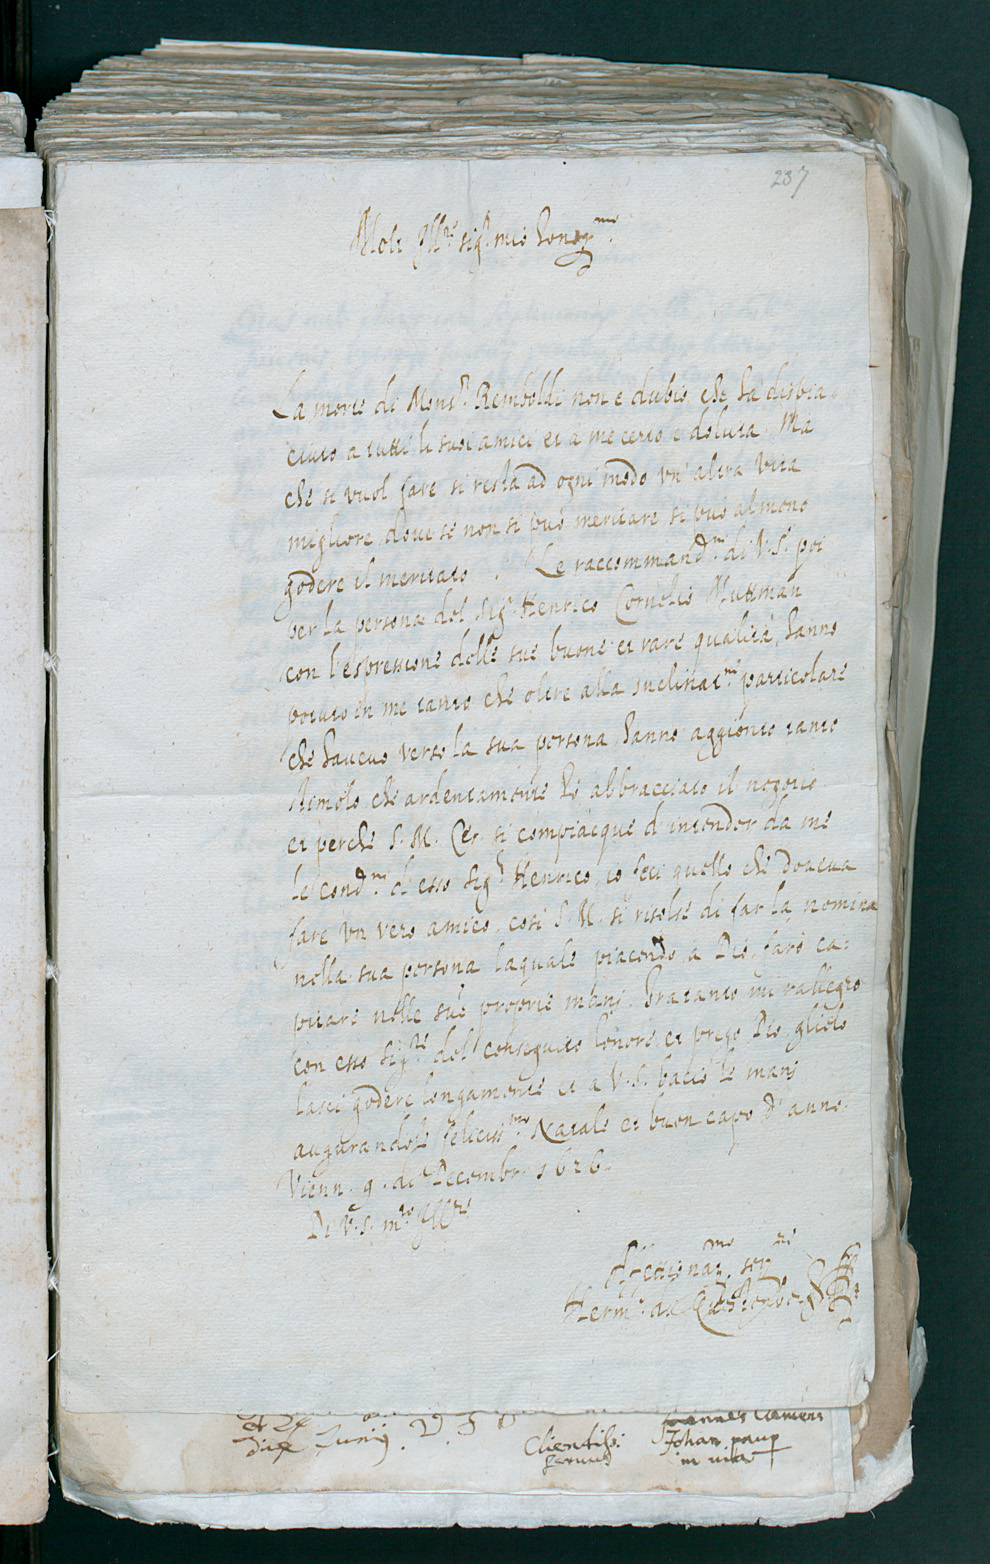 237
Molt Ill.re sig.r mio honor.mo
La morte di Mons.r Remboldi non e dubio, che ha dispia-
ciuto a tutti li suoi amici et à me certo e doluta. Ma
che si vuol fare si resta ad ogni modo un' altra vita
migliore, dove se non si può meritare si può almeno
godere il meritato. Le raccommand.ni di V.S. poi
per la persona del Sig.r Henrico Cornelio Multman
con l'espressione delle sue buone et rare qualità, hanno
potuto in me tanto che oltre alla inclinat.ne particolare
che havevo verso la sua persona hanno aggionto tanto
stimolo che ardentamente hò abbracciato il negotio
et perche S. M. Ces. si compiacque d'intender da me
le cond.ni di esso Sig.r Henrico, io feci quello che doveva
fare un vero amico, cosi S. M. si risolse di far la nomina
nella sua persona laquale piacendo a Dio, farò ca-
pitare nelle sue proprie mani. Fra tanto mi rallegro
con esso Sig.re del conseguito honore, et prego Dio, glielo
lasci godere longamente et a V.S. bacio le mani
augurandole felicis.mo Natale et buon capo d'anno.
Vienn. 9. di Decembr. 1626.
Di V.S. m.to Ill.re
Affettionat.mo ser.re
Herm. de Questenberg
et
die Junij
Clientiss.
servus
Joannes
Johan.
in